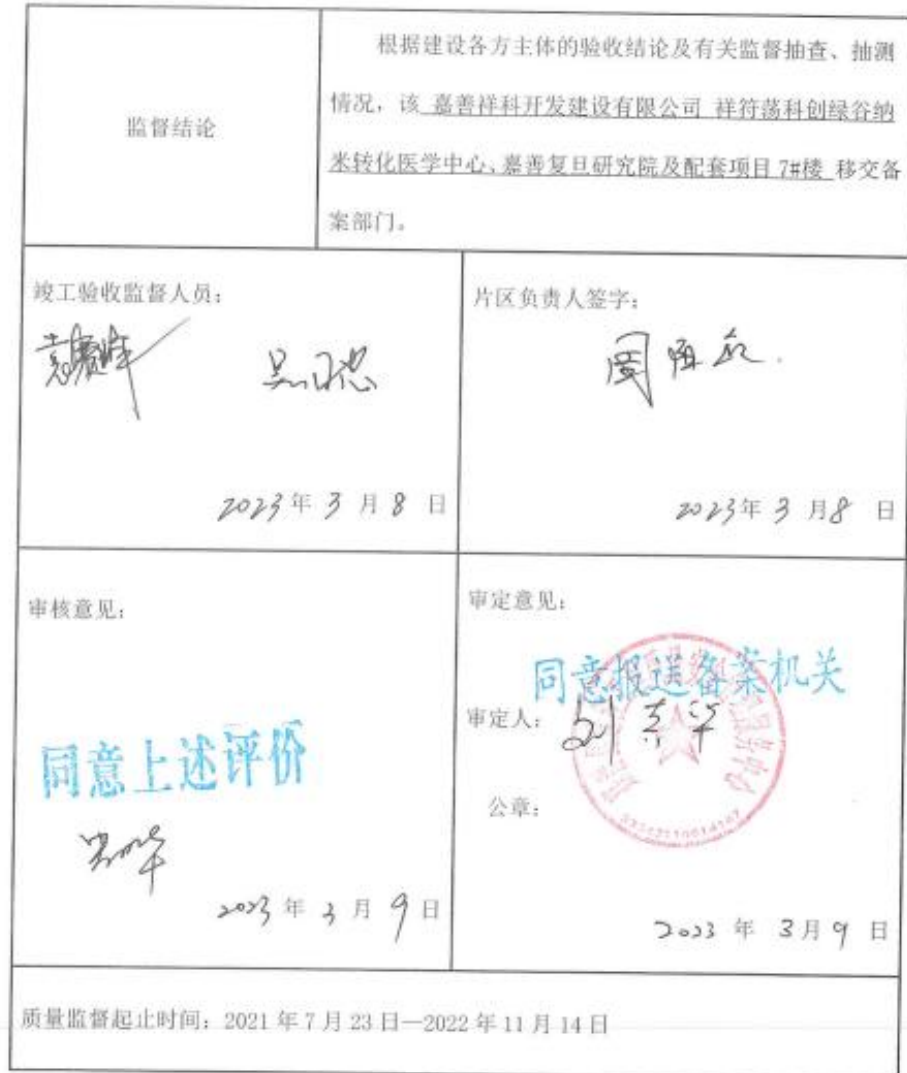 监督结论
根据建设各方主体的验收结论及有关监督抽查、抽测
情况，该 嘉善祥科开发建设有限公司 祥符荡科创绿谷纳
米转化医学中心、嘉善复旦研究院及配套项目 7#楼 移交备
案部门。
竣工验收监督人员：
2023年 3 月 8 日
片区负责人签字：
2023年 3 月 8 日
审核意见：
同意上述评价
2023 年 3 月 9 日
审定意见：
同意报送备案机关
审定人：
公章：
2023 年 3月 9 日
质量监督起止时间：2021 年 7 月 23 日—2022 年 11 月 14 日